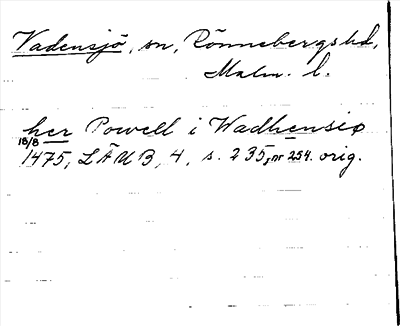 Vadensjö, sn, Rönnebergs hd,
Malm. l.
her Powell i Wadhensiø
18/8
1475, LÄUB, 4, s. 235, nr 254. orig.